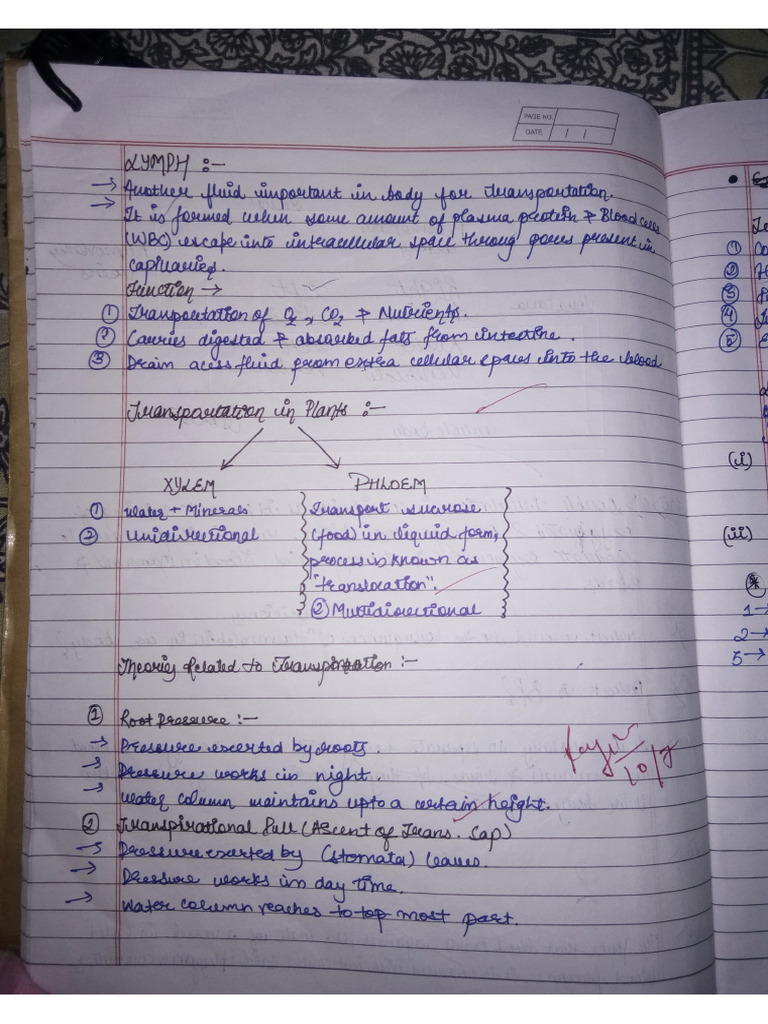 PAGE NO.
DATE / /
LYMPH :-
→ Another fluid important in body for Transportation.
→ It is formed when some amount of plasma protein & Blood cells
(WBC) escape into intracellular space throug pores present in
capillaries.
Function →
① Transportation of O2, CO2 & Nutrients.
② Carries digested & absorbed fats from intestine.
③ Drain acess fluid from extra cellular spaces into the blood
Transportation in Plants :-
XYLEM PHLOEM
① Water + Minerals Transport sucrose
② Unidirectional (food) in liquid form,
process is known as
"translocation".
② Multidirectional
Theoris Related to Transpiration :-
① Root Pressure :-
→ Pressure excerted by roots.
→ Pressure works in night.
→ Water column maintains upto a certain height.
② Transpirational Pull (Ascent of Trans. Sap)
→ Pressure exerted by (stomata) leaves.
→ Pressure works in day time.
→ Water column reaches to top most part.
10/7
①
②
③
④
⑤
(i)
(ii)
1→
2→
3→